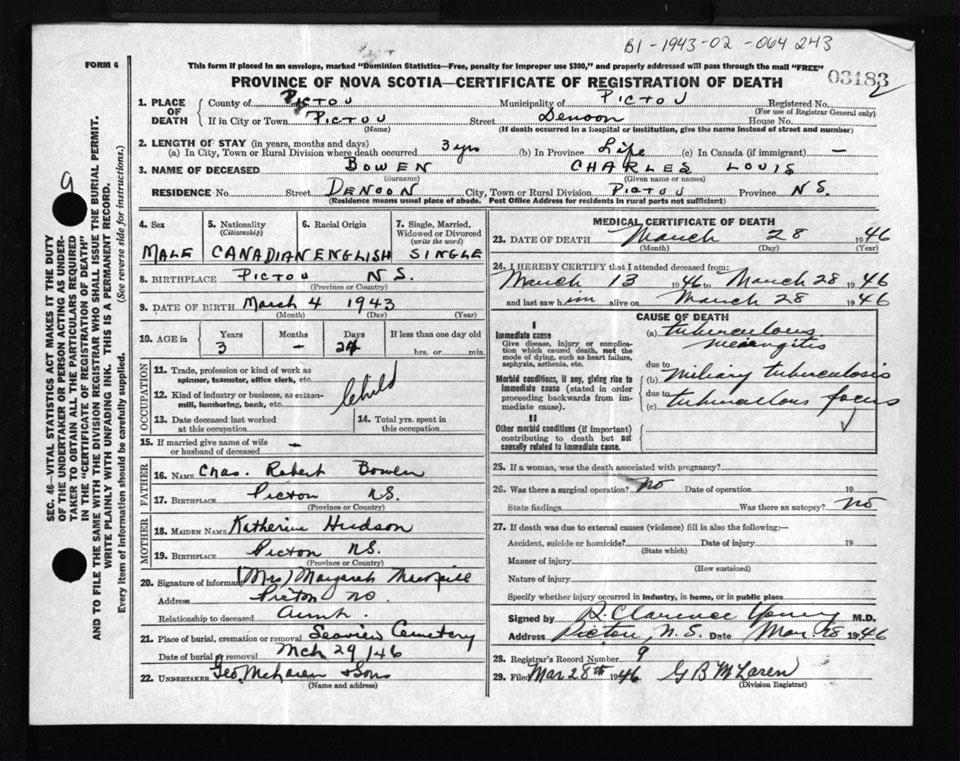 B1-1943-02-064243
FORM 6
This form if placed in an envelope, marked "Dominion Statistics—Free, penalty for improper use $300," and properly addressed will pass through the mail "FREE"
03183
2
PROVINCE OF NOVA SCOTIA—CERTIFICATE OF REGISTRATION OF DEATH
1. PLACE OF DEATH County of PICTOU Municipality of PICTOU Registered No.
(For use of Registrar General only)
If in City or Town PICTOU Street Denoon House No.
(Name) (If death occurred in a hospital or institution, give the name instead of street and number)
2. LENGTH OF STAY (in years, months and days)
(a) In City, Town or Rural Division where death occurred 3 yrs (b) In Province Life (c) In Canada (if immigrant) —
3. NAME OF DECEASED BOWEN CHARLES LOUIS
(Surname) (Given name or names)
RESIDENCE No. Street DENOON City, Town or Rural Division PICTOU Province N S.
(Residence means usual place of abode. Post Office Address for residents in rural parts not sufficient)
4. Sex 5. Nationality 6. Racial Origin 7. Single, Married,
(Citizenship) Widowed or Divorced
(write the word)
MALE CANADIAN ENGLISH SINGLE
8. BIRTHPLACE PICTOU N S.
(Province or Country)
9. DATE OF BIRTH March 4 1943
(Month) (Day) (Year)
10. AGE in Years Months Days If less than one day old
3 – 24 hrs. or min.
OCCUPATION
11. Trade, profession or kind of work as
spinner, teamster, office clerk, etc.
12. Kind of industry or business, as cotton-
mill, lumbering, bank, etc.
Child
13. Date deceased last worked
at this occupation
14. Total yrs. spent in
this occupation
15. If married give name of wife
or husband of deceased –
FATHER
16. NAME Chas. Robert Bowen
17. BIRTHPLACE Pictou N.S.
(Province or Country)
MOTHER
18. MAIDEN NAME Katherine Hudson
19. BIRTHPLACE Pictou NS.
(Province or Country)
20. Signature of informant (Mrs) Margaret
Address Pictou NS
Relationship to deceased Aunt.
21. Place of burial, cremation or removal Seaview Cemetery
Date of burial or removal Mch 29/46
22. UNDERTAKER Geo. McLaren & Sons
(Name and address)
MEDICAL CERTIFICATE OF DEATH
23. DATE OF DEATH March 28 1946
(Month) (Day) (Year)
24. I HEREBY CERTIFY that I attended deceased from:
March 13 1946 to March 28 1946
and last saw him alive on March 28 1946
CAUSE OF DEATH
I
Immediate cause
Give disease, injury or complica-
tion which caused death, not the
mode of dying, such as heart failure,
asphyxia, asthenia, etc.
(a) tuberculous
meningitis
due to
Morbid conditions, if any, giving rise to
immediate cause (stated in order
proceeding backwards from im-
mediate cause).
(b) Miliary tuberculosis
due to
(c) tuberculous focus
II
Other morbid conditions (if important)
contributing to death but not
causally related to immediate cause.
25. If a woman, was the death associated with pregnancy?
26. Was there a surgical operation? No Date of operation 19
State findings Was there an autopsy? No
27. If death was due to external causes (violence) fill in also the following:—
Accident, suicide or homicide? Date of injury 19
(State which)
Manner of injury
(How sustained)
Nature of injury
Specify whether injury occurred in industry, in home, or in public place
Signed by R. Clarence Young M.D.
Address Pictou, N.S. Date Mar 28 1946
28. Registrar's Record Number 9
29. Filed Mar 28th 1946 G B McLaren
(Division Registrar)
9
SEC. 46—VITAL STATISTICS ACT MAKES IT THE DUTY
OF THE UNDERTAKER OR PERSON ACTING AS UNDER-
TAKER TO OBTAIN ALL THE PARTICULARS REQUIRED
IN THE "CERTIFICATE OF REGISTRATION OF DEATH"
AND TO FILE THE SAME WITH THE DIVISION REGISTRAR WHO SHALL ISSUE THE BURIAL PERMIT.
WRITE PLAINLY WITH UNFADING INK. THIS IS A PERMANENT RECORD.
Every item of information should be carefully supplied. (See reverse side for instructions.)